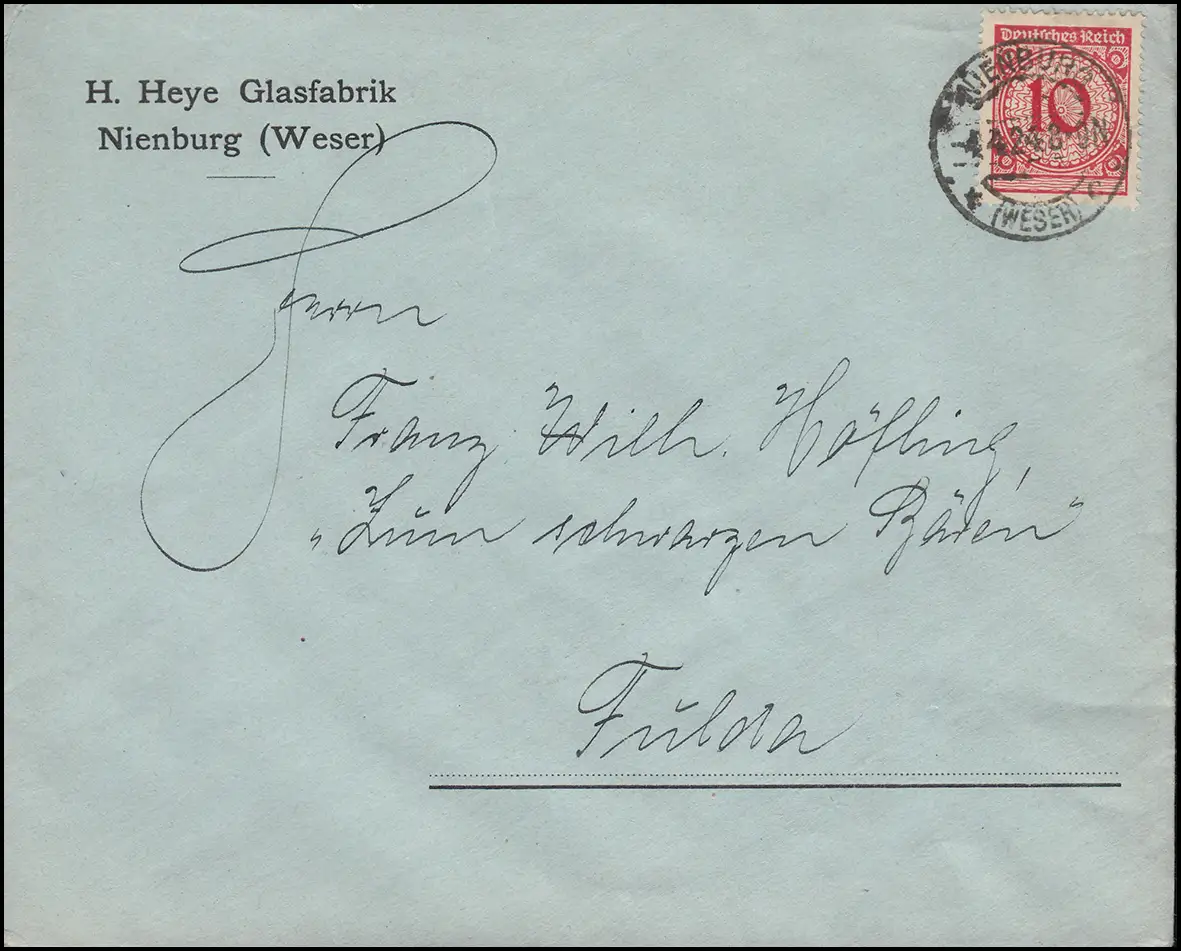 H. Heye Glasfabrik
Nienburg (Weser)
Deutsches Reich
10
NIENBURG
4.4.24.
(WESER)
Herrn
Franz Wilh. Höfling,
„Zum schwarzen Bären"
Fulda